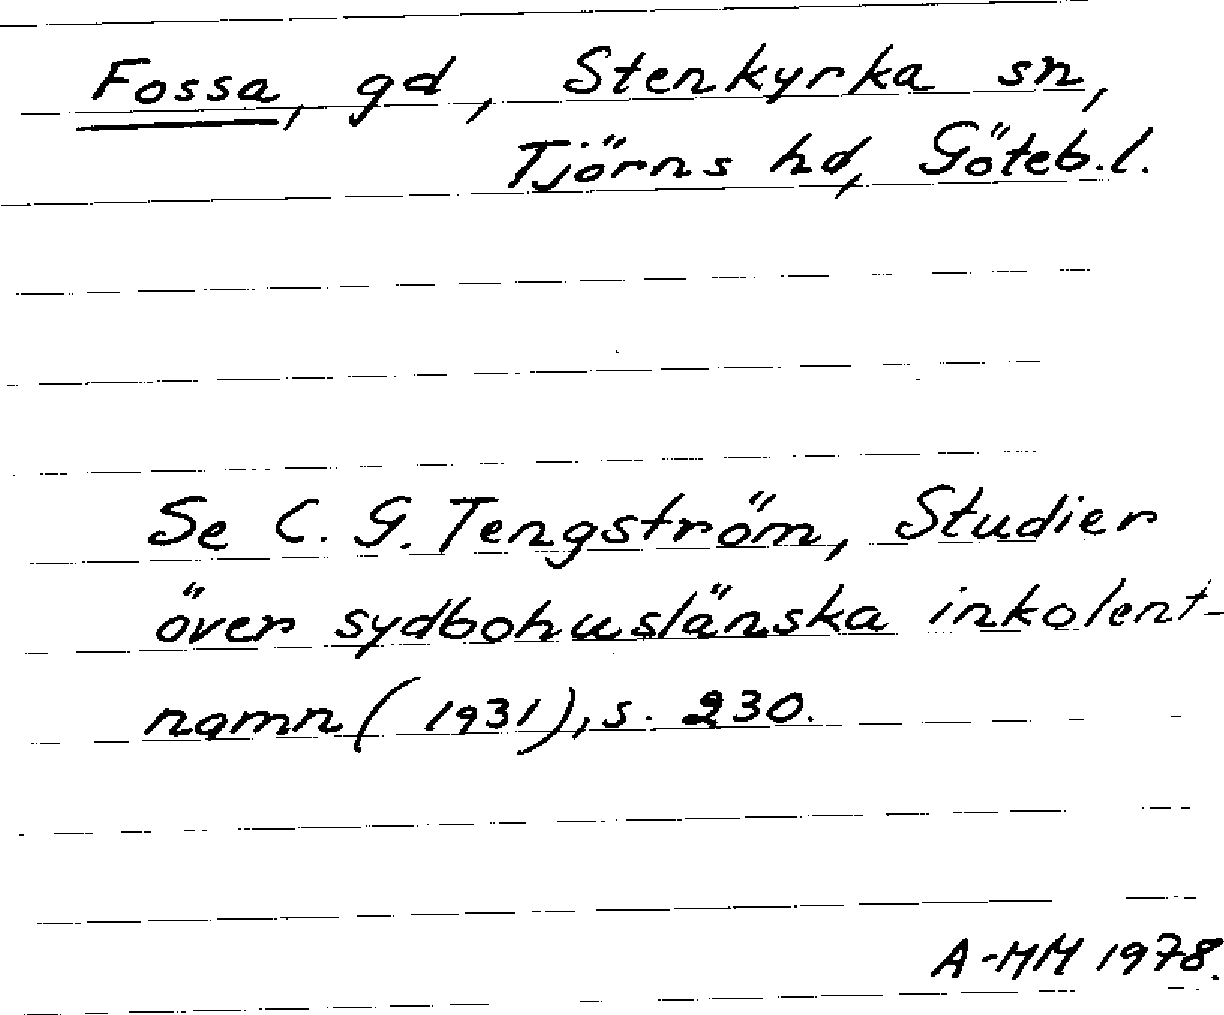 Fossa, gd, Stenkyrka sn,
Tjörns hd, Göteb.l.
Se C. G. Tengström, Studier
över sydbohuslänska inkolent-
namn (1931), s. 230.
A-MM 1978.